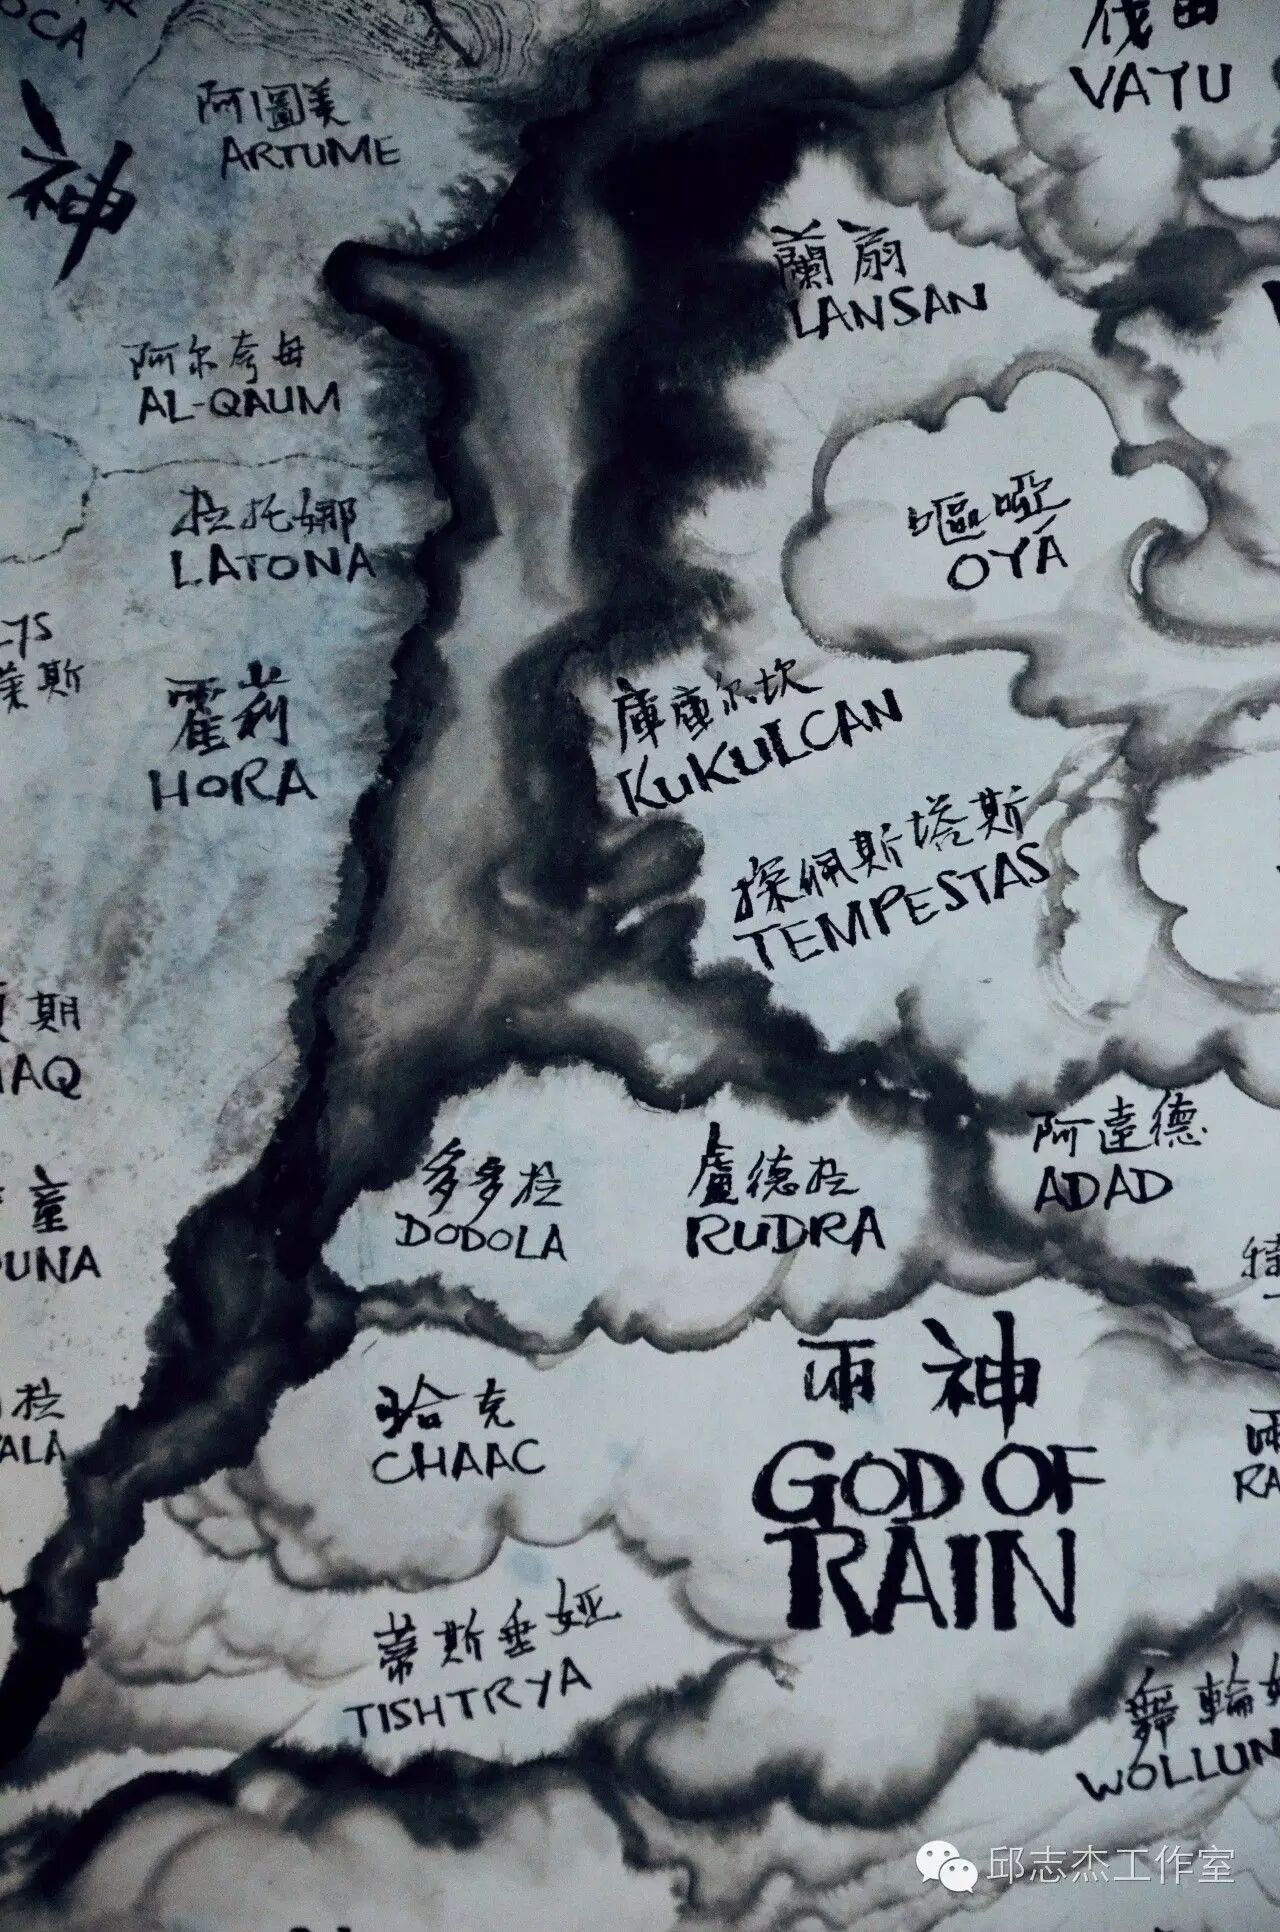 OCA
伐由
VAYU
阿圖美
ARTUME
神
蘭扇
LANSAN
阿尔夸母
AL-QAUM
嘔啞
OYÁ
拉托娜
LATONA
萊斯
霍莉
HORA
庫庫尔坎
KUKULCAN
探佩斯塔斯
TEMPESTAS
期
AQ
阿達德
ADAD
多多拉
DODOLA
盧德拉
RUDRA
童
UNA
特
雨神
GOD OF
RAIN
哈克
CHAAC
拉
ALA
雨
RA
蒂斯垂娅
TISHTRYA
舞輪
WOLLUN
邱志杰工作室